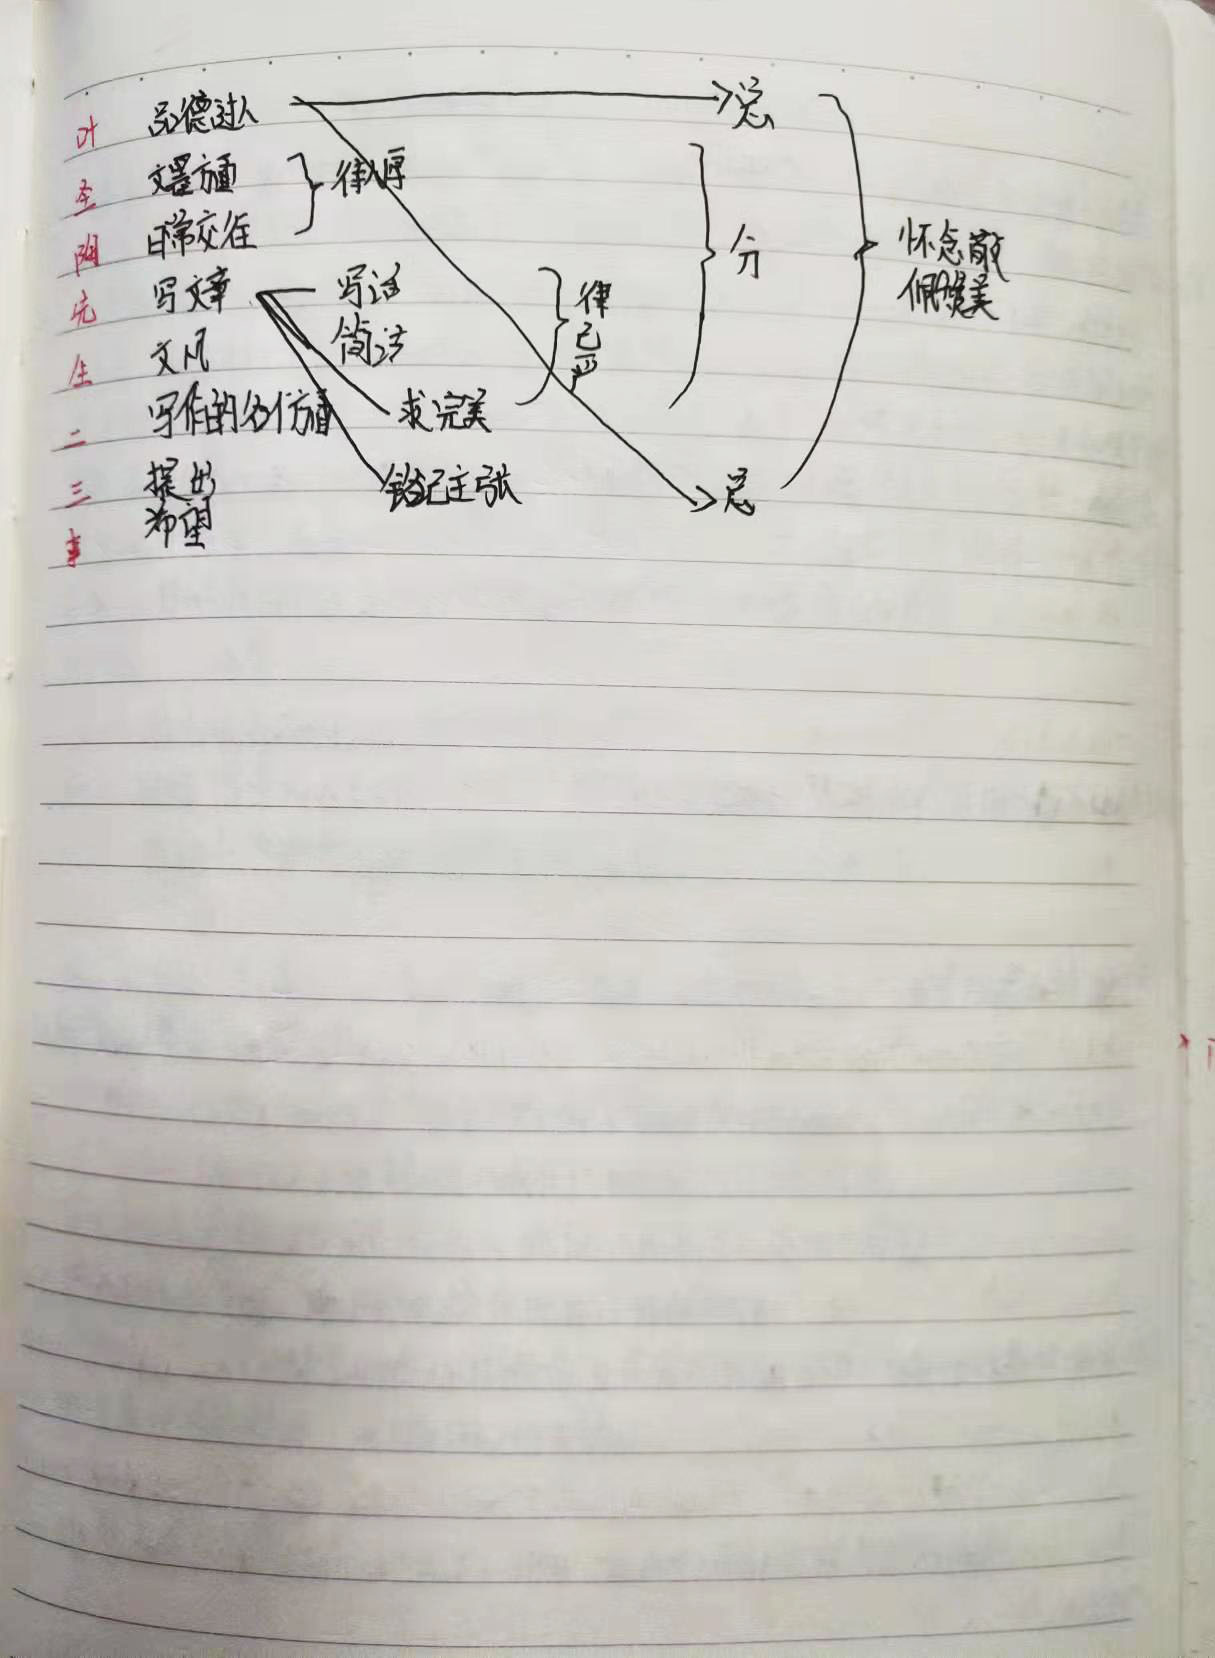 叶圣陶先生二三事
品德过人
总
文墨方面
待人厚
日常交往
分
怀念敬
佩赞美
写文章
写话
律己严
文风
简洁
写作的各个方面
求完美
提出
希望
总